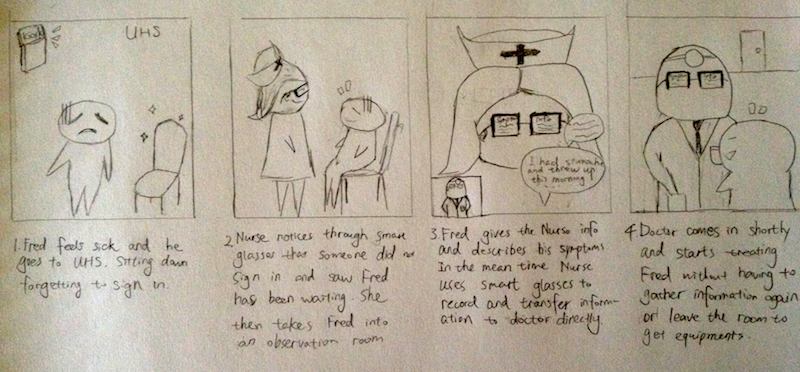 UHS
1. Fred feels sick and he
goes to UHS. Sitting down
forgetting to sign in.
2. Nurse notices through smart
glasses that someone did not
sign in and saw Fred
has been waiting. She
then takes Fred into
an observation room
I had stomache
and threw up
this morning
3. Fred gives the Nurse info
and describes his symptoms
In the mean time Nurse
uses smart glasses to
record and transfer inform-
ation to doctor directly.
4. Doctor comes in shortly
and starts treating
Fred without having to
gather information again
or leave the room to
get equipments.